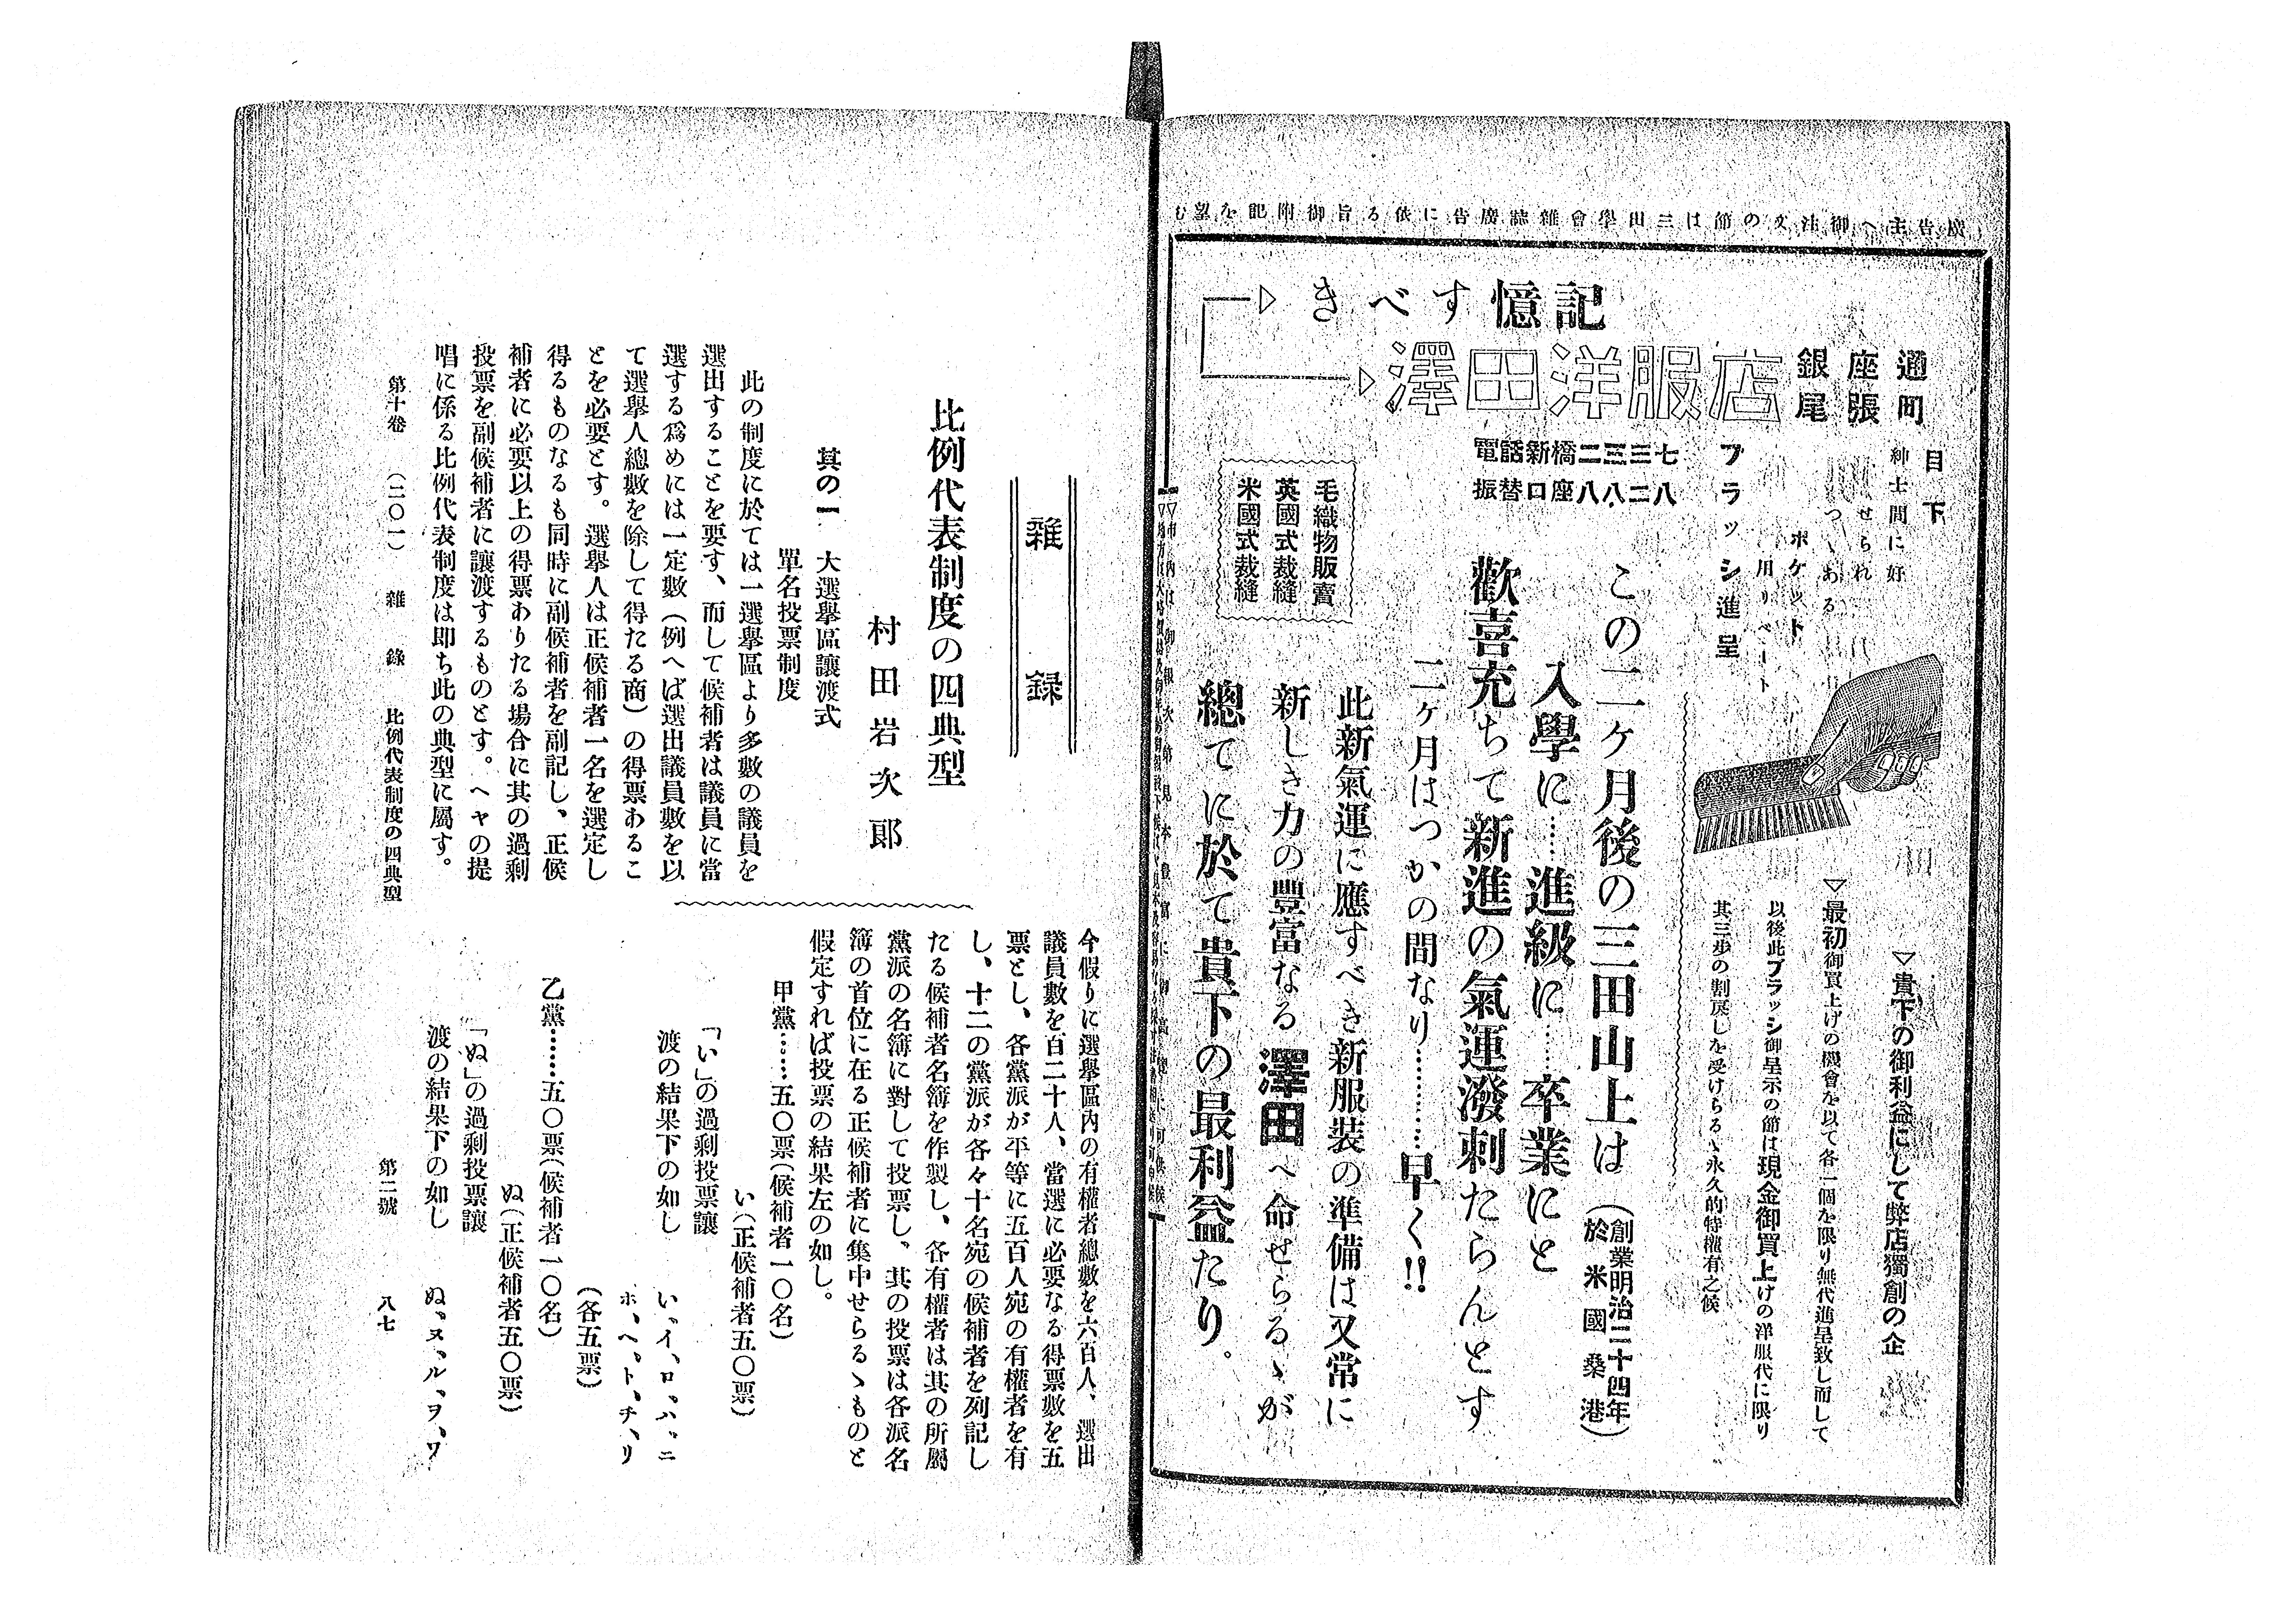 廣告主へ御注文の節は三田學會雜誌廣告に依る旨御附記を望む
記憶すべき
通座銀
町張尾
澤田洋服店
電話新橋二三三七
振替口座八八二八
毛織物販賣
英國式裁縫
米國式裁縫
目下
紳士間に好
せられ
つゝある
ポケット
用リベート
ブラッシ進呈
▽貴下の御利益にして弊店獨創の企
▽最初御買上げの機會を以て各一個を限り無代進呈致し而して
以後此ブラッシ御呈示の節は現金御買上げの洋服代に限り
其三歩の割戻しを受けらるゝ永久的特權有之候
この二ヶ月後の三田山上は
(創業明治二十四年
於米國桑港)
入學に……進級に……卒業にと
歡喜充ちて新進の氣運潑剌たらんとす
二ヶ月はつかの間なり…………早く!!
此新氣運に應すべき新服裝の準備は又常に
新しき力の豐富なる澤田へ命せらるゝが
總てに於て貴下の最利益たり。
雜錄
比例代表制度の四典型
村田岩次郎
其の一 大選擧區讓渡式
單名投票制度
此の制度に於ては一選擧區より多數の議員を
選出することを要す、而して候補者は議員に當
選する爲めには一定數(例へば選出議員數を以
て選擧人總數を除して得たる商)の得票あるこ
とを必要とす。選擧人は正候補者一名を選定し
得るものなるも同時に副候補者を副記し、正候
補者に必要以上の得票ありたる場合に其の過剩
投票を副候補者に讓渡するものとす。ヘヤの提
唱に係る比例代表制度は即ち此の典型に屬す。
今假りに選擧區内の有權者總數を六百人、選出
議員數を百二十人、當選に必要なる得票數を五
票とし、各黨派が平等に五百人宛の有權者を有
し、十二の黨派が各々十名宛の候補者を列記し
たる候補者名簿を作製し、各有權者は其の所屬
黨派の名簿に對して投票し、其の投票は各派名
簿の首位に在る正候補者に集中せらるゝものと
假定すれば投票の結果左の如し。
甲黨……五〇票(候補者一〇名)
い(正候補者五〇票)
「い」の過剩投票讓
渡の結果下の如し
い、イ、ロ、ハ、ニ
ホ、ヘ、ト、チ、リ
(各五票)
乙黨……五〇票(候補者一〇名)
ぬ(正候補者五〇票)
「ぬ」の過剩投票讓
渡の結果下の如し
ぬ、ヌ、ル、ヲ、ワ
第十卷 (二〇一) 雜錄 比例代表制度の四典型
第二號 八七